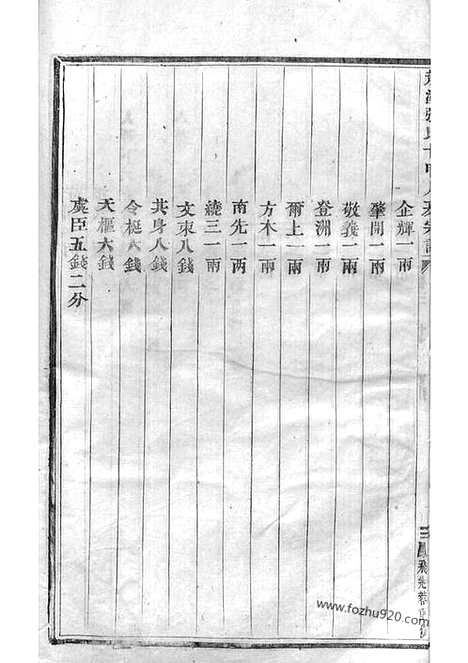 企輝一兩
肇開一兩
敬義一兩
登洲一兩
爾上一兩
方木一兩
南先一两
繞三一兩
文東八錢
共身八錢
令梃六錢
天樞六錢
虞臣五錢二分
www.fozhu920.com